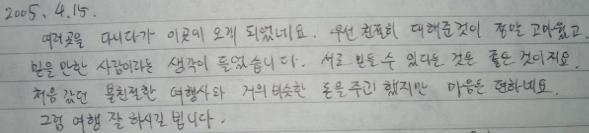 2005. 4. 15.
여러곳을 다니다가 이곳에 오게 되었네요. 우선 친절히 대해준것이 정말 고마웠고.
믿을 만한 사람이라는 생각이 들었습니다. 서로 믿을 수 있다는 것은 좋은 것이지요.
처음 갔던 불친절한 여행사와 거의 비슷한 돈을 주긴 했지만 마음은 편하네요.
그럼 여행 잘 하시길 빕니다.